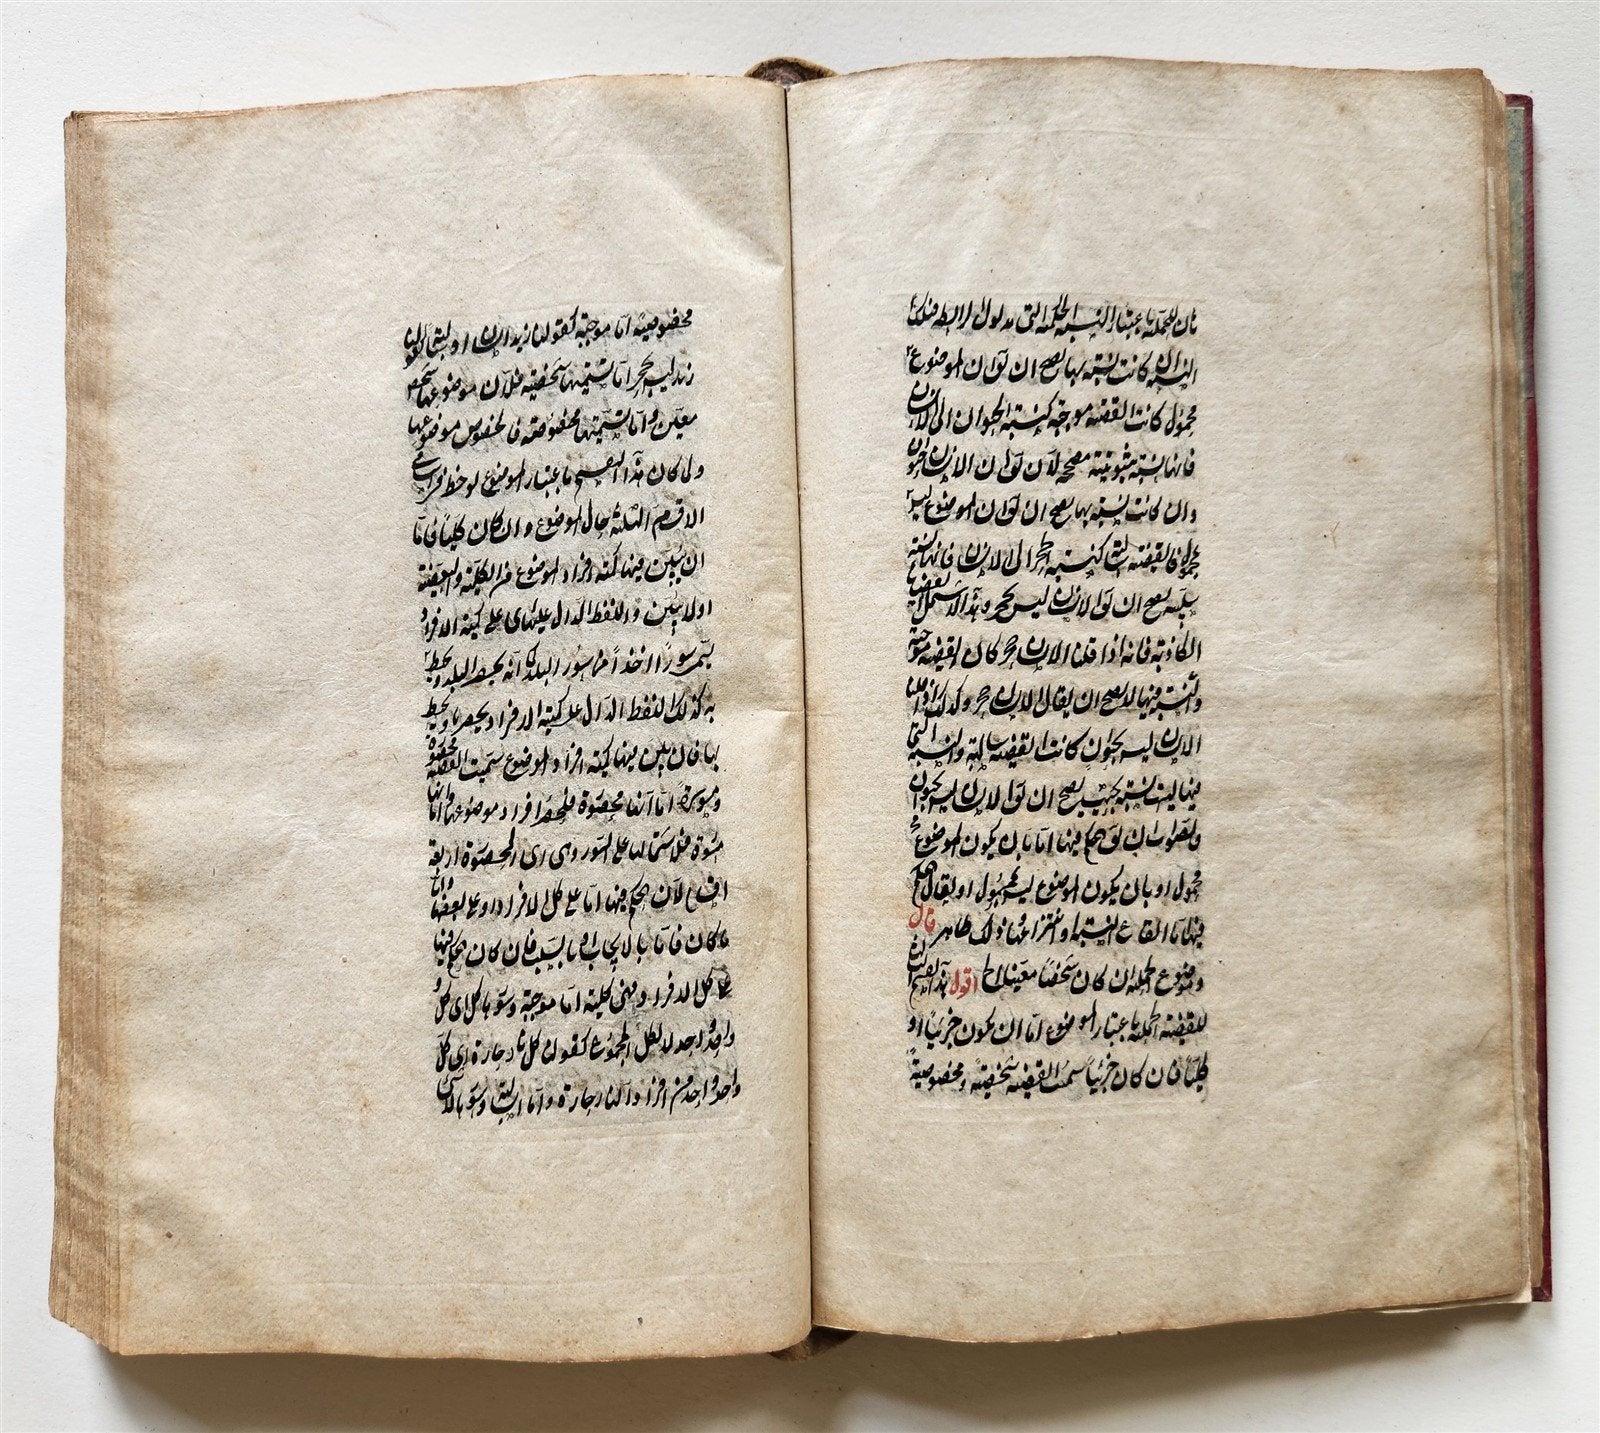 ثان للحملية باعتبار النسبة الحكمية التى هى مدلول الرابطة فتلك
النسبة ان كانت نسبة بها يصح ان يقال ان الموضوع
محمول كانت القضية موجبة كنسبة الحيوان الى الانسان
فانها نسبة ثبوتية مصححة لان يقال ان الانسان حيوان
وان كانت نسبة بها يصح ان يقال ان الموضوع ليس
بمحمول فالقضية سالبة كنسبة الحجر الى الانسان فانها نسبة
سلبية بها يصح ان يقال الانسان ليس بحجر وهذا لا يشمل القضايا
الكاذبة فانه اذا قلنا الانسان حجر كان القضية موجبة
والنسبة فيها لا يصح ان يقال الانسان حجر وكذلك اذا قلنا
الانسان ليس بحيوان كانت القضية سالبة والنسبة التى
فيها ليست نسبة بحيث يصح ان يقال الانسان ليس بحيوان
والصواب ان يقال الحكم فيها اما بان يكون الموضوع
محمول او بان يكون الموضوع ليس بمحمول او يقال الحكم
فيها اما ايقاع النسبة او انتزاعها وذلك ظاهر قال
وموضوع الحملية ان كان شخصا معينا الخ اقول هذا تقسيم ثالث
للقضية الحملية باعتبار الموضوع اما ان يكون جزئيا او
كليا فان كان جزئيا سميت القضية شخصية ومخصوصة
مخصوصة اما موجبة كقولنا زيد انسان او سالبة كقولنا
زيد ليس بحجر اما تسميتها شخصية فلان موضوعها شخص
معين واما تسميتها مخصوصة فلخصوص موضوعها
ولما كان هذا التقسيم باعتبار الموضوع لوحظ فى اسامى
الاقسام الثلثة حال الموضوع وان كان كليا فاما
ان يبين فيها كمية افراد الموضوع من الكلية والبعضية
اولا يبين واللفظ الدال عليها اى على كمية الافراد
يسمى سورا اخذا من سور البلد كما انه يحصر البلد ويحيط
به كذلك اللفظ الدال على كمية الافراد يحصرها ويحيط
بها فان بين فيها كمية افراد الموضوع سميت القضية محصورة
ومسورة اما انها محصورة فلحصر افراد موضوعها واما انها
مسورة فلاشتمالها على السور وهى اى المحصورة اربعة
اقسام لان الحكم فيها اما على كل الافراد او على بعضها وايا
ما كان فاما بالايجاب او بالسلب فان كان الحكم فيها
على كل الافراد فهى كلية اما موجبة وسورها كل اى كل
واحد واحد لا الكل المجموعى كقولنا كل نار حارة اى كل
واحد واحد من افراد النار حارة واما سالبة وسورها لا شئ